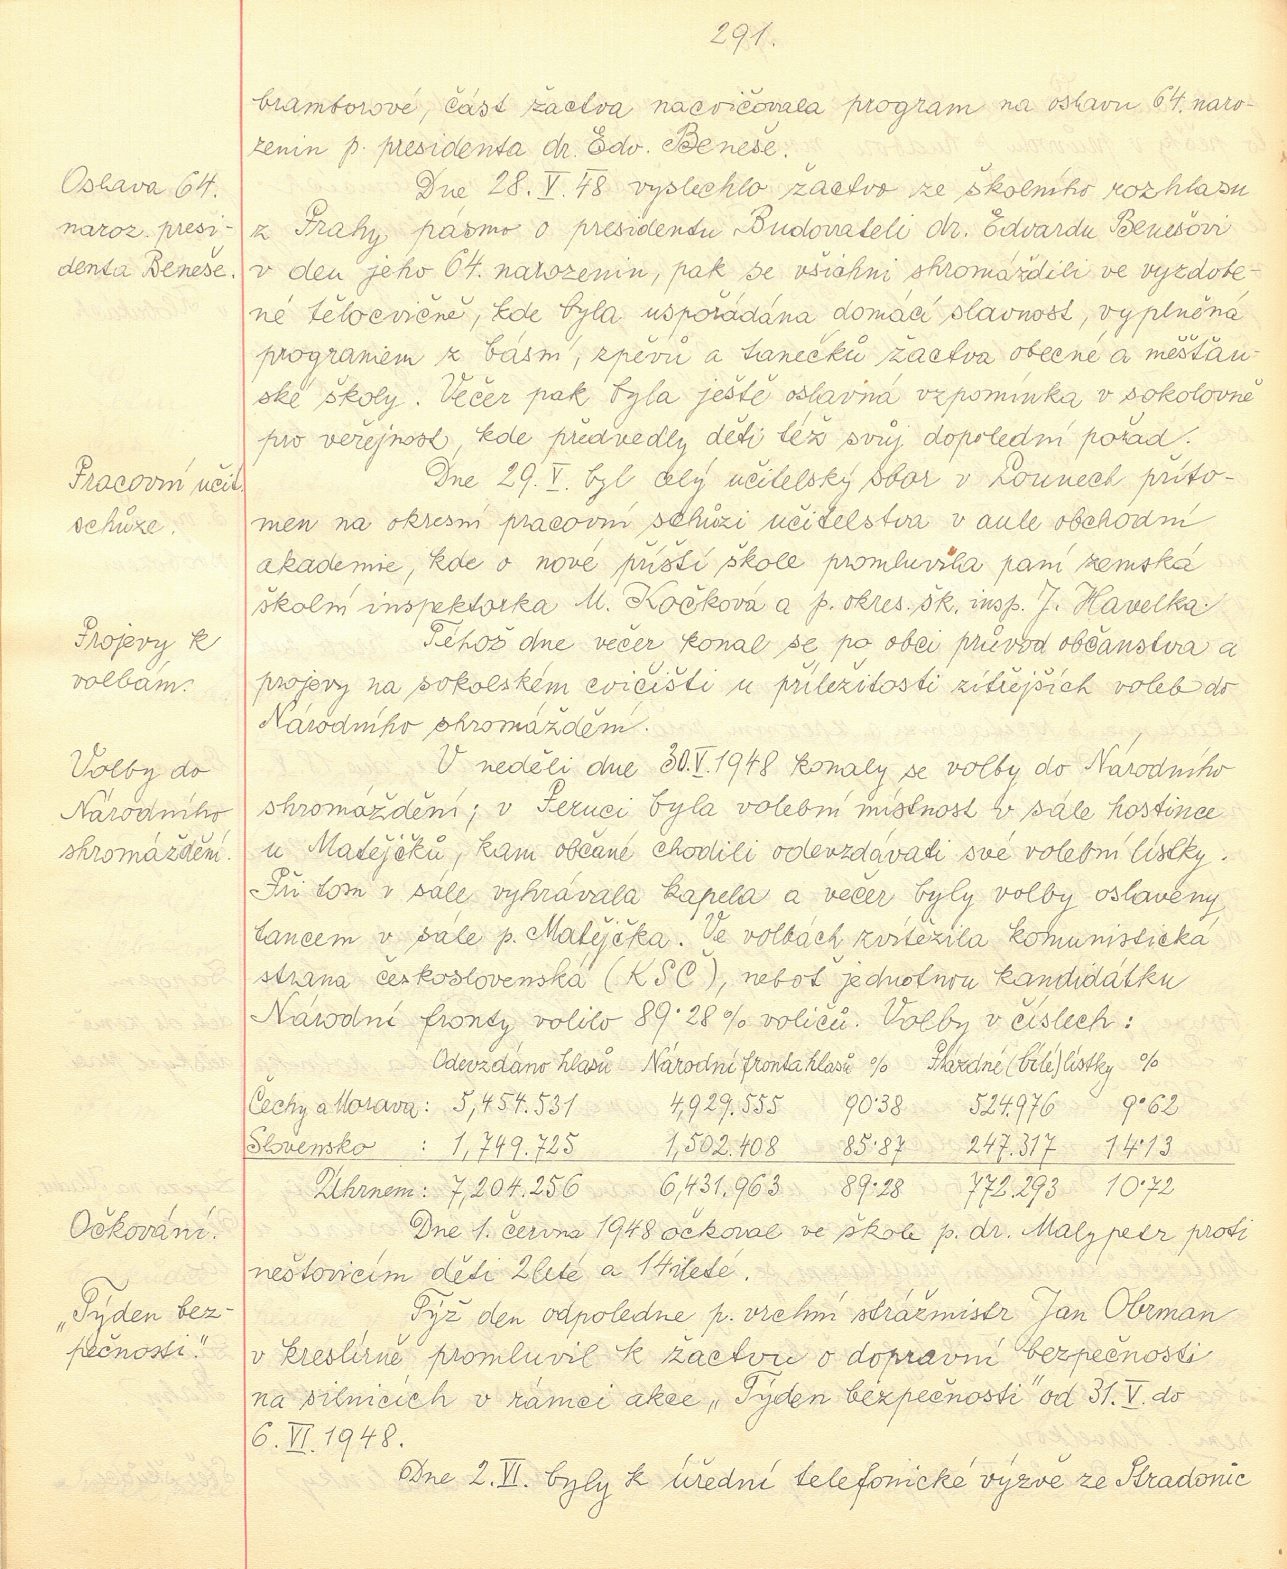 291.
bramborové, část žactva nacvičovala program na oslavu 64. naro-
zenin p. presidenta dr. Edv. Beneše.
Oslava 64.
naroz. presi-
denta Beneše.
Dne 28. V. 48 vyslechlo žactvo ze školního rozhlasu
z Prahy pásmo o presidentu Budovateli dr. Edvardu Benešovi
v den jeho 64. narozenin, pak se všichni shromáždili ve vyzdobe-
né tělocvičně, kde byla uspořádána domácí slavnost, vyplněná
programem z básní, zpěvů a tanečků žactva obecné a měšťan-
ské školy. Večer pak byla ještě oslavná vzpomínka v sokolovně
pro veřejnost, kde předvedly děti též svůj dopolední pořad.
Pracovní učit.
schůze.
Dne 29. V. byl celý učitelský sbor v Lounech příto-
men na okresní pracovní schůzi učitelstva v aule obchodní
akademie, kde o nové příští škole promluvila paní zemská
školní inspektorka M. Kočková a p. okres. šk. insp. J. Havelka.
Projevy k
volbám.
Téhož dne večer konal se po obci průvod občanstva a
projevy na sokolském cvičišti u příležitosti zítřejších voleb do
Národního shromáždění.
Volby do
Národního
shromáždění.
V neděli dne 30. V. 1948 konaly se volby do Národního
shromáždění; v Peruci byla volební místnost v sále hostince
u Matějčků, kam občané chodili odevzdávati své volební lístky.
Při tom v sále vyhrávala kapela a večer byly volby oslaveny
tancem v sále p. Matějčka. Ve volbách zvítězila komunistická
strana československá (KSČ), neboť jednotnou kandidátku
Národní fronty volilo 89·28 % voličů. Volby v číslech:
Odevzdáno hlasů Národní fronta hlasů % Prázdné (bílé) lístky %
Čechy a Morava: 5,454.531 4,929.555 90·38 524.976 9·62
Slovensko : 1,749.725 1,502.408 85·87 247.317 14·13
Úhrnem: 7,204.256 6,431.963 89·28 772.293 10·72
Očkování.
Dne 1. června 1948 očkoval ve škole p. dr. Malypetr proti
neštovicím děti 2leté a 14tileté.
„Týden bez-
pečnosti."
Týž den odpoledne p. vrchní strážmistr Jan Obrman
v kreslírně promluvil k žactvu o dopravní bezpečnosti
na silnicích v rámci akce „Týden bezpečnosti" od 31. V. do
6. VI. 1948.
Dne 2. VI. byly k úřední telefonické výzvě ze Stradonic